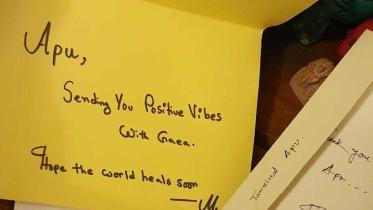 Apu,
Sending You Positive Vibes
With Gaea.
Hope the world heals soon
Tanweed Apu.
you
Apu....